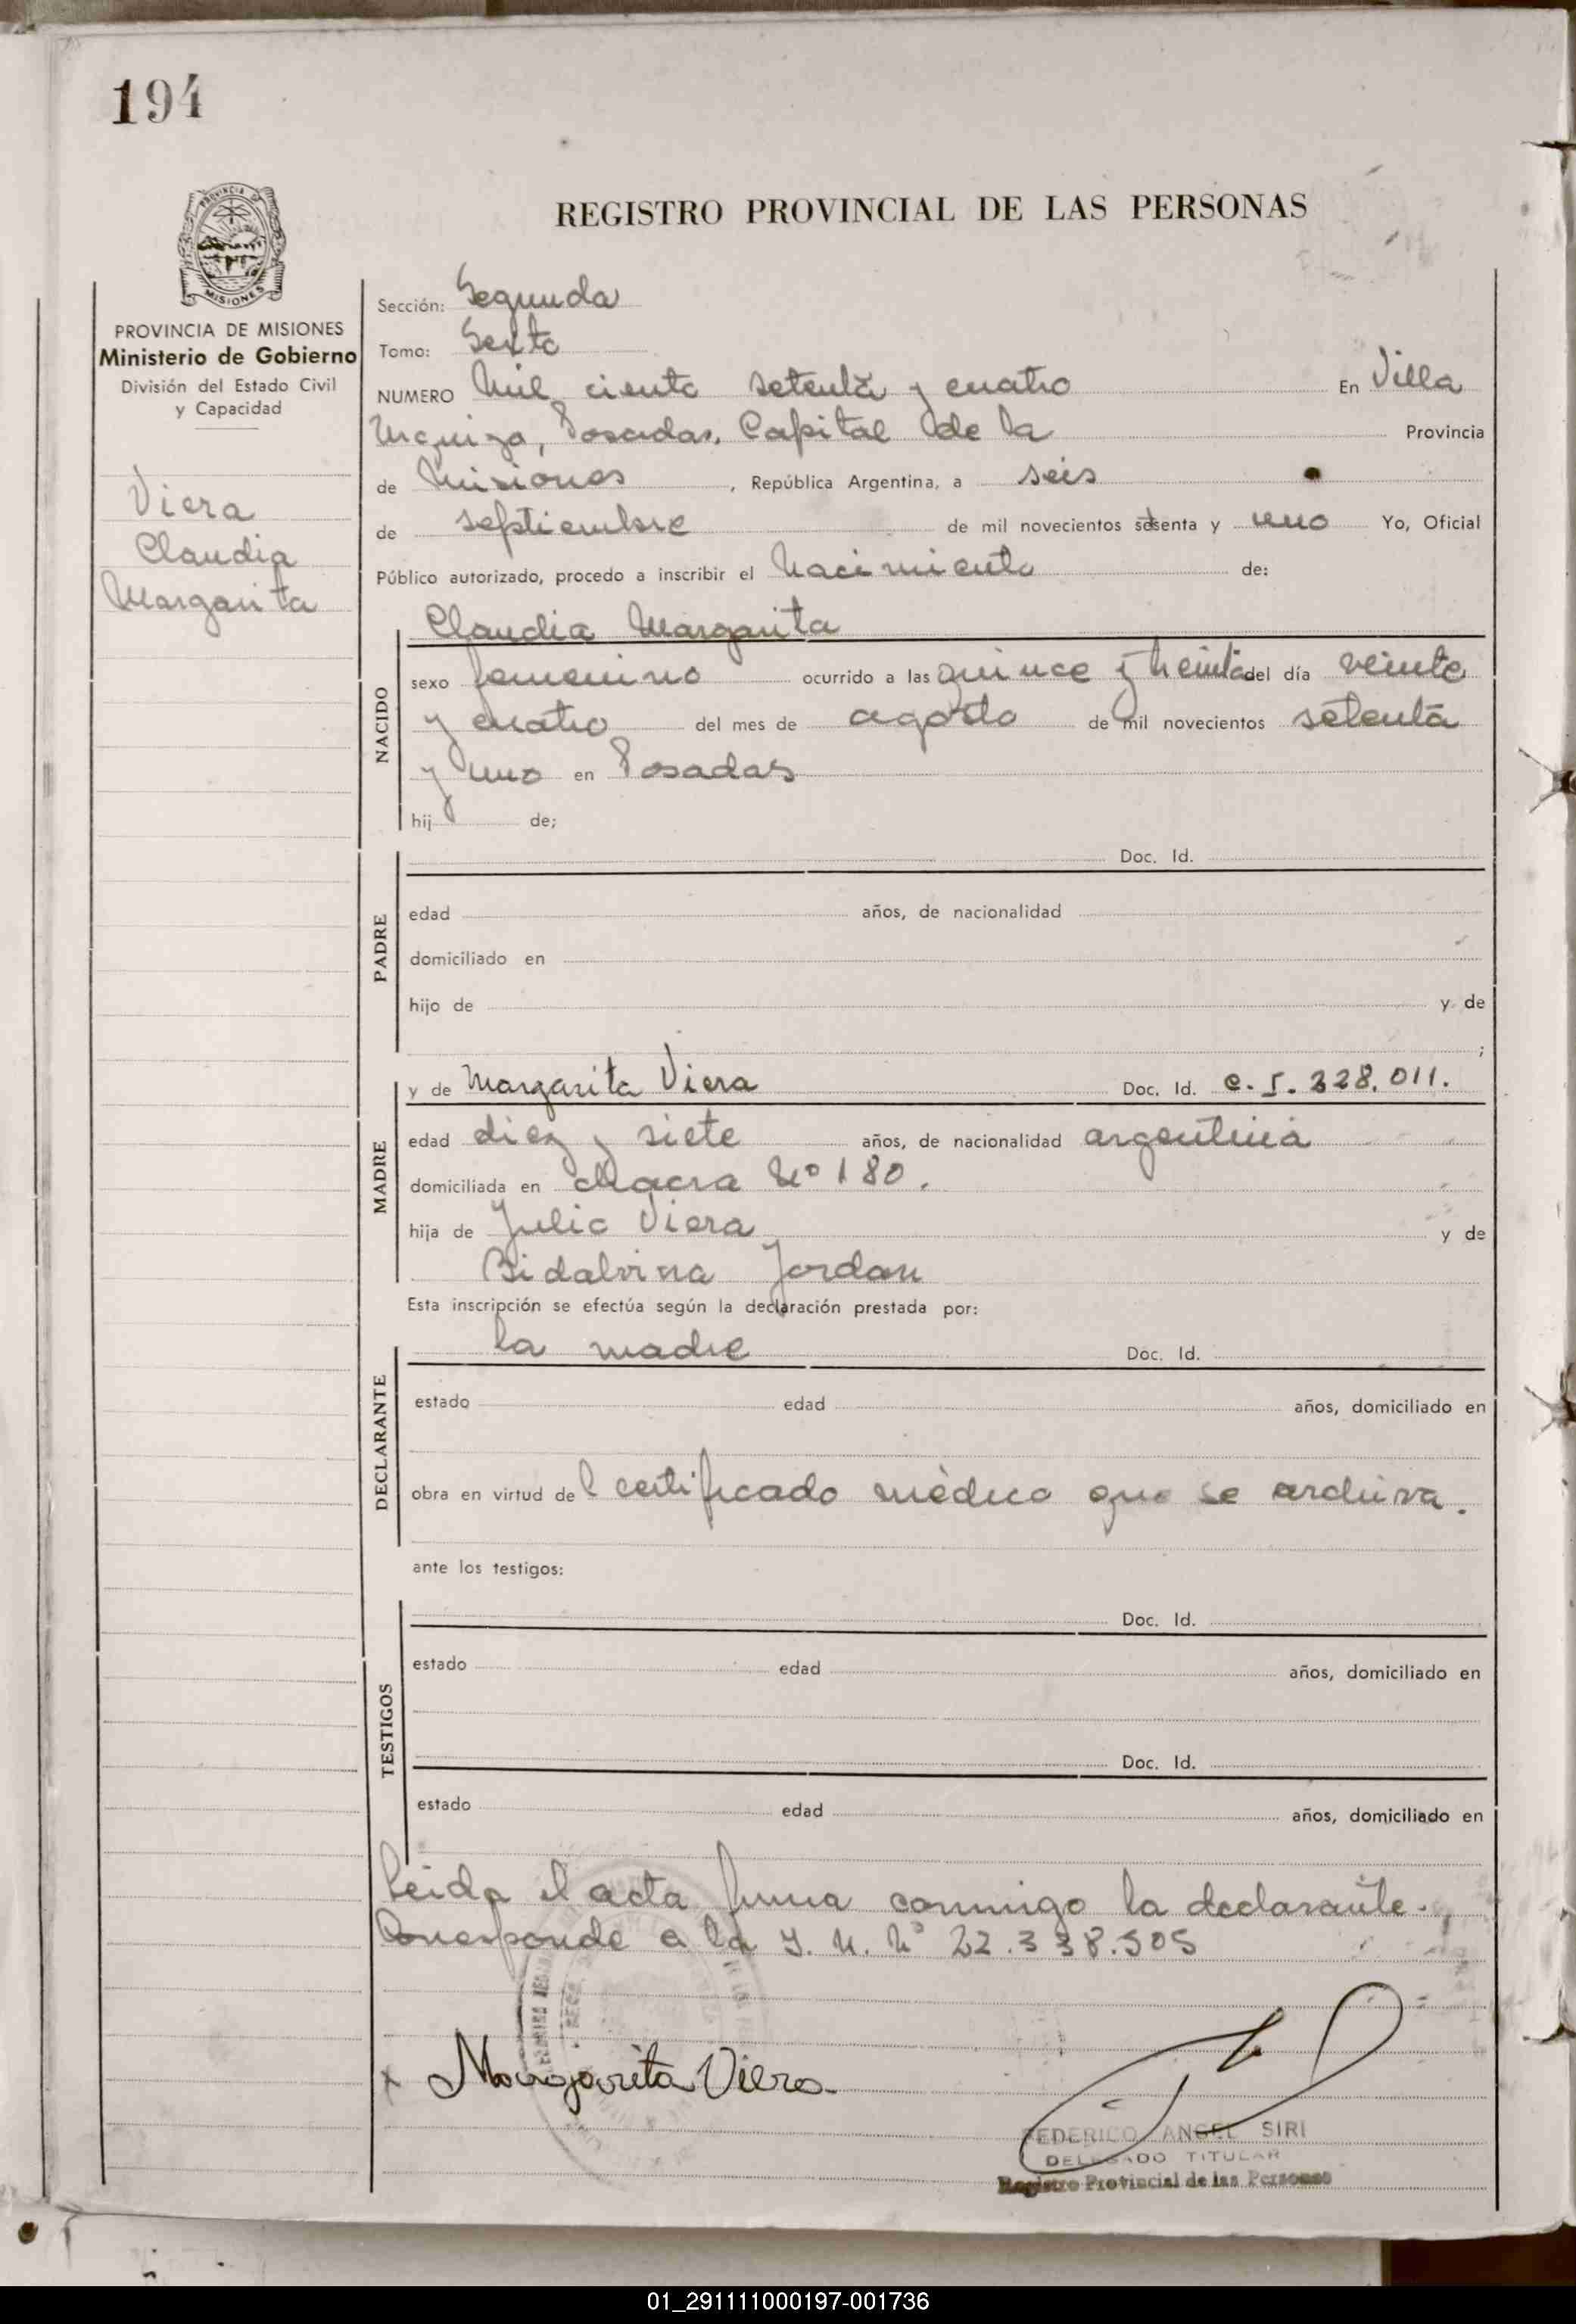 194
PROVINCIA DE
MISIONES
REGISTRO PROVINCIAL DE LAS PERSONAS
PROVINCIA DE MISIONES
Ministerio de Gobierno
División del Estado Civil
y Capacidad
Viera
Claudia
Margarita
Sección: Segunda
Tomo: Sexto
NUMERO Mil ciento setenta y cuatro En Villa
Urquiza, Posadas, Capital de la Provincia
de Misiones, República Argentina, a seis
de septiembre de mil novecientos setenta y uno Yo, Oficial
Público autorizado, procedo a inscribir el Nacimiento de:
Claudia Margarita
NACIDO
sexo femenino ocurrido a las quince y treinta del día veinte
y cuatro del mes de agosto de mil novecientos setenta
y uno en Posadas
hij de;
PADRE
Doc. Id.
edad años, de nacionalidad
domiciliado en
hijo de y de
;
MADRE
y de Margarita Viera Doc. Id. C. I. 228.011.
edad diez y siete años, de nacionalidad argentina
domiciliada en chacra Nº 180.
hija de Julio Viera y de
Bidalvina Jordan
Esta inscripción se efectúa según la declaración prestada por:
DECLARANTE
la madre Doc. Id.
estado edad años, domiciliado en
obra en virtud del certificado médico que se archiva.
ante los testigos:
TESTIGOS
Doc. Id.
estado edad años, domiciliado en
Doc. Id.
estado edad años, domiciliado en
Leida el acta firma conmigo la declarante.
Corresponde a la I. N. Nº 22.338.505
x Margarita Viera
FEDERICO ANGEL SIRI
DELEGADO TITULAR
Registro Provincial de las Personas
01_291111000197-001736